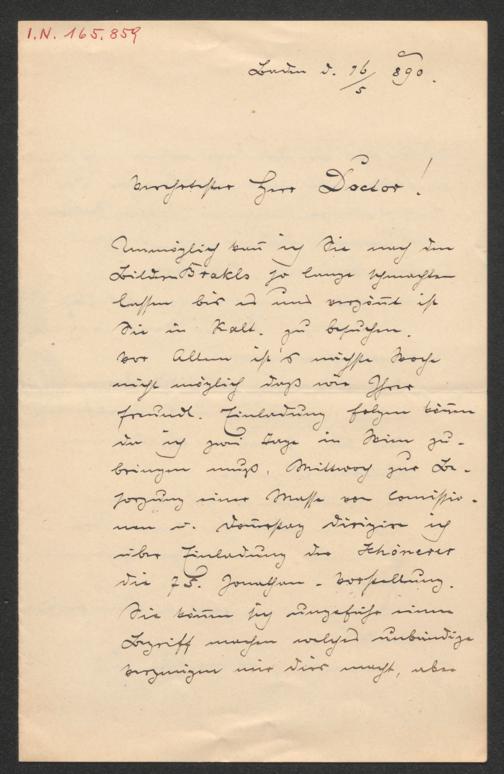 I.N. 165.859
Baden d. 16/5 890.
Verehrtester Herr Doctor!
Unmöglich kañ ich Sie nach den
Bildern Brakls so lange schmachten
lassen bis es uns vergöñt ist
Sie in Kalt. zu besuchen.
Vor Allem ist's nächste Woche
nicht möglich daß wir Ihrer
freundl. Einladung folgen köñen
da ich zwei Tage in Wien zu-
bringen muß, Mittwoch zur Be-
sorgung einer Masse von Comissio-
nen u. Doñerstag dirigire ich
über Einladung der Schönerer
die 75. Jonathan-Vorstellung.
Sie köñen sich ungefähr einen
Begriff machen welches unbändige
Vergnügen mir dies macht, aber